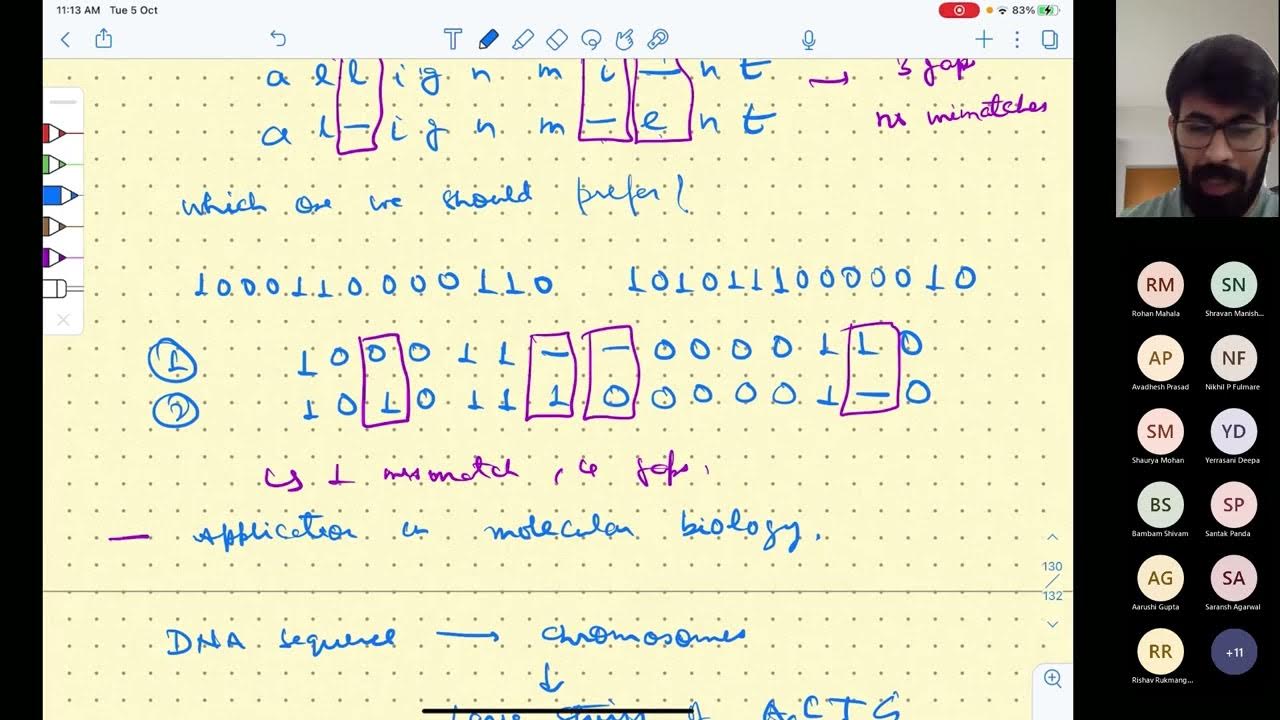 11:13 AM Tue 5 Oct
83%
a l l i g n m i — n t → 3 gaps
a l — i g n m — e n t no mimatches
which one we should prefer?
1000110000110 10101110000010
① 1 0 0 0 1 1 — — 0 0 0 0 1 1 0
② 1 0 1 0 1 1 1 0 0 0 0 0 1 — 0
↳ 1 mismatch,
— Application in molecular biology.
130
132
DNA sequence → chromosomes
↓
long string of A,C,T,G
RM SN
Rohan Mahala Shravan Manish...
AP NF
Avadhesh Prasad Nikhil P Fulmare
SM YD
Shaurya Mohan Yerrasani Deepa
BS SP
Bambam Shivam Santak Panda
AG SA
Aarushi Gupta Saransh Agarwal
RR +11
Rishav Rukmang...